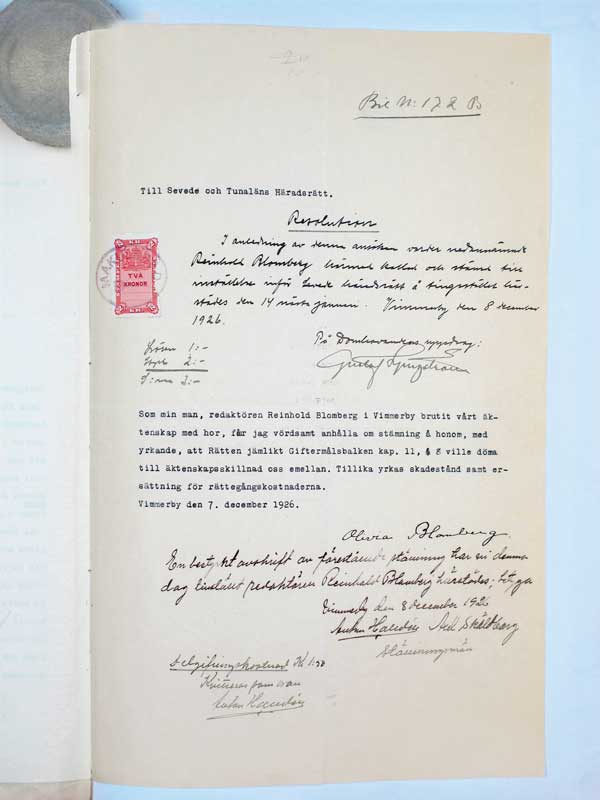 Bil Nr 172 B
Till Sevede och Tunaläns Häradsrätt.
Resolution
I anledning av denna ansökan varder nedannämnde
Reinhold Blomberg härmed kallad och stämd till
inställelse inför Sevede häradsrätt å tingsstället här-
städes den 14 nästa januari. Vimmerby den 8 december
1926.
TVÅ
KRONOR
På Domhavandens uppdrag:
Lösen 1:-
2:-
S:ma 3:-
Gustaf
Som min man, redaktören Reinhold Blomberg i Vimmerby brutit vårt äk-
tenskap med hor, får jag vördsamt anhålla om stämning å honom, med
yrkande, att Rätten jämlikt Giftermålsbalken kap. 11, § 8 ville döma
till äktenskapsskillnad oss emellan. Tillika yrkas skadestånd samt er-
sättning för rättegångskostnaderna.
Vimmerby den 7. december 1926.
Olivia Blomberg.
En bestyrkt avskrift av förestående stämning har vi denna
dag tillställt redaktören Reinhold Blomberg härstädes; betyga
Vimmerby den 8 december 1926
Axel Sköldberg
Stämningsmän
Delgifningskostnad Kr 1:50
Kvitteras som ovan